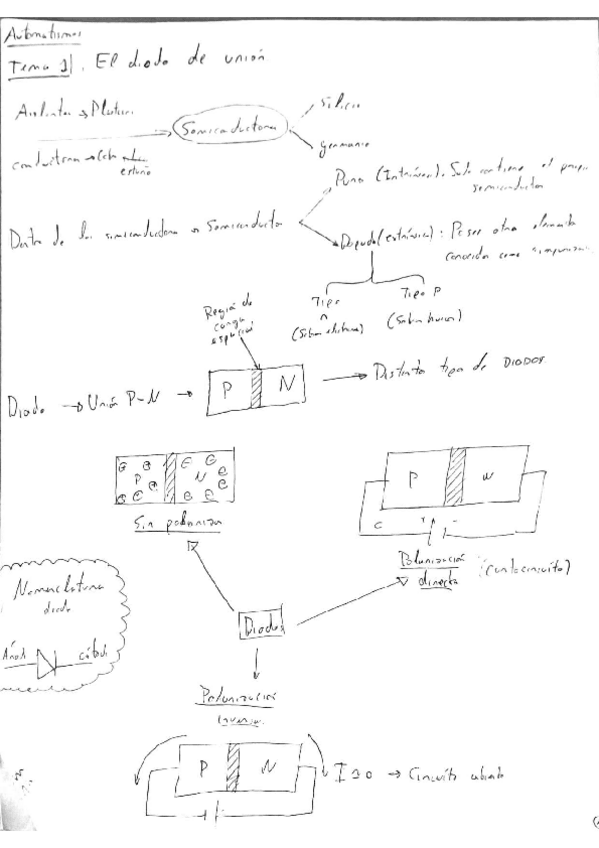 Automatismos
Tema 1). El diodo de unión
Aislantes → Plástico
Semiconductores
Silicio
germanio
conductores → Cob
estaño
Puro (Intrínseco). Solo contiene el propio
semiconductor
Dentro de los semiconductores → Semiconductor
Dopado (extrínseco): Posee otros elementos
conocidos como impurezas
Tipo
n
(Sobran electrones)
Tipo P
(Sobran huecos)
Región de
carga
espacial
Diodo → Unión P-N →
P N
→ Distintos tipos de DIODOS
P N
Sin polarizar
P N
Polarización
directa
(cortocircuito)
Nomenclatura
diodo
Ánodo
cátodo
Diodos
Polarización
inversa
P N
I=0 → Circuito abierto